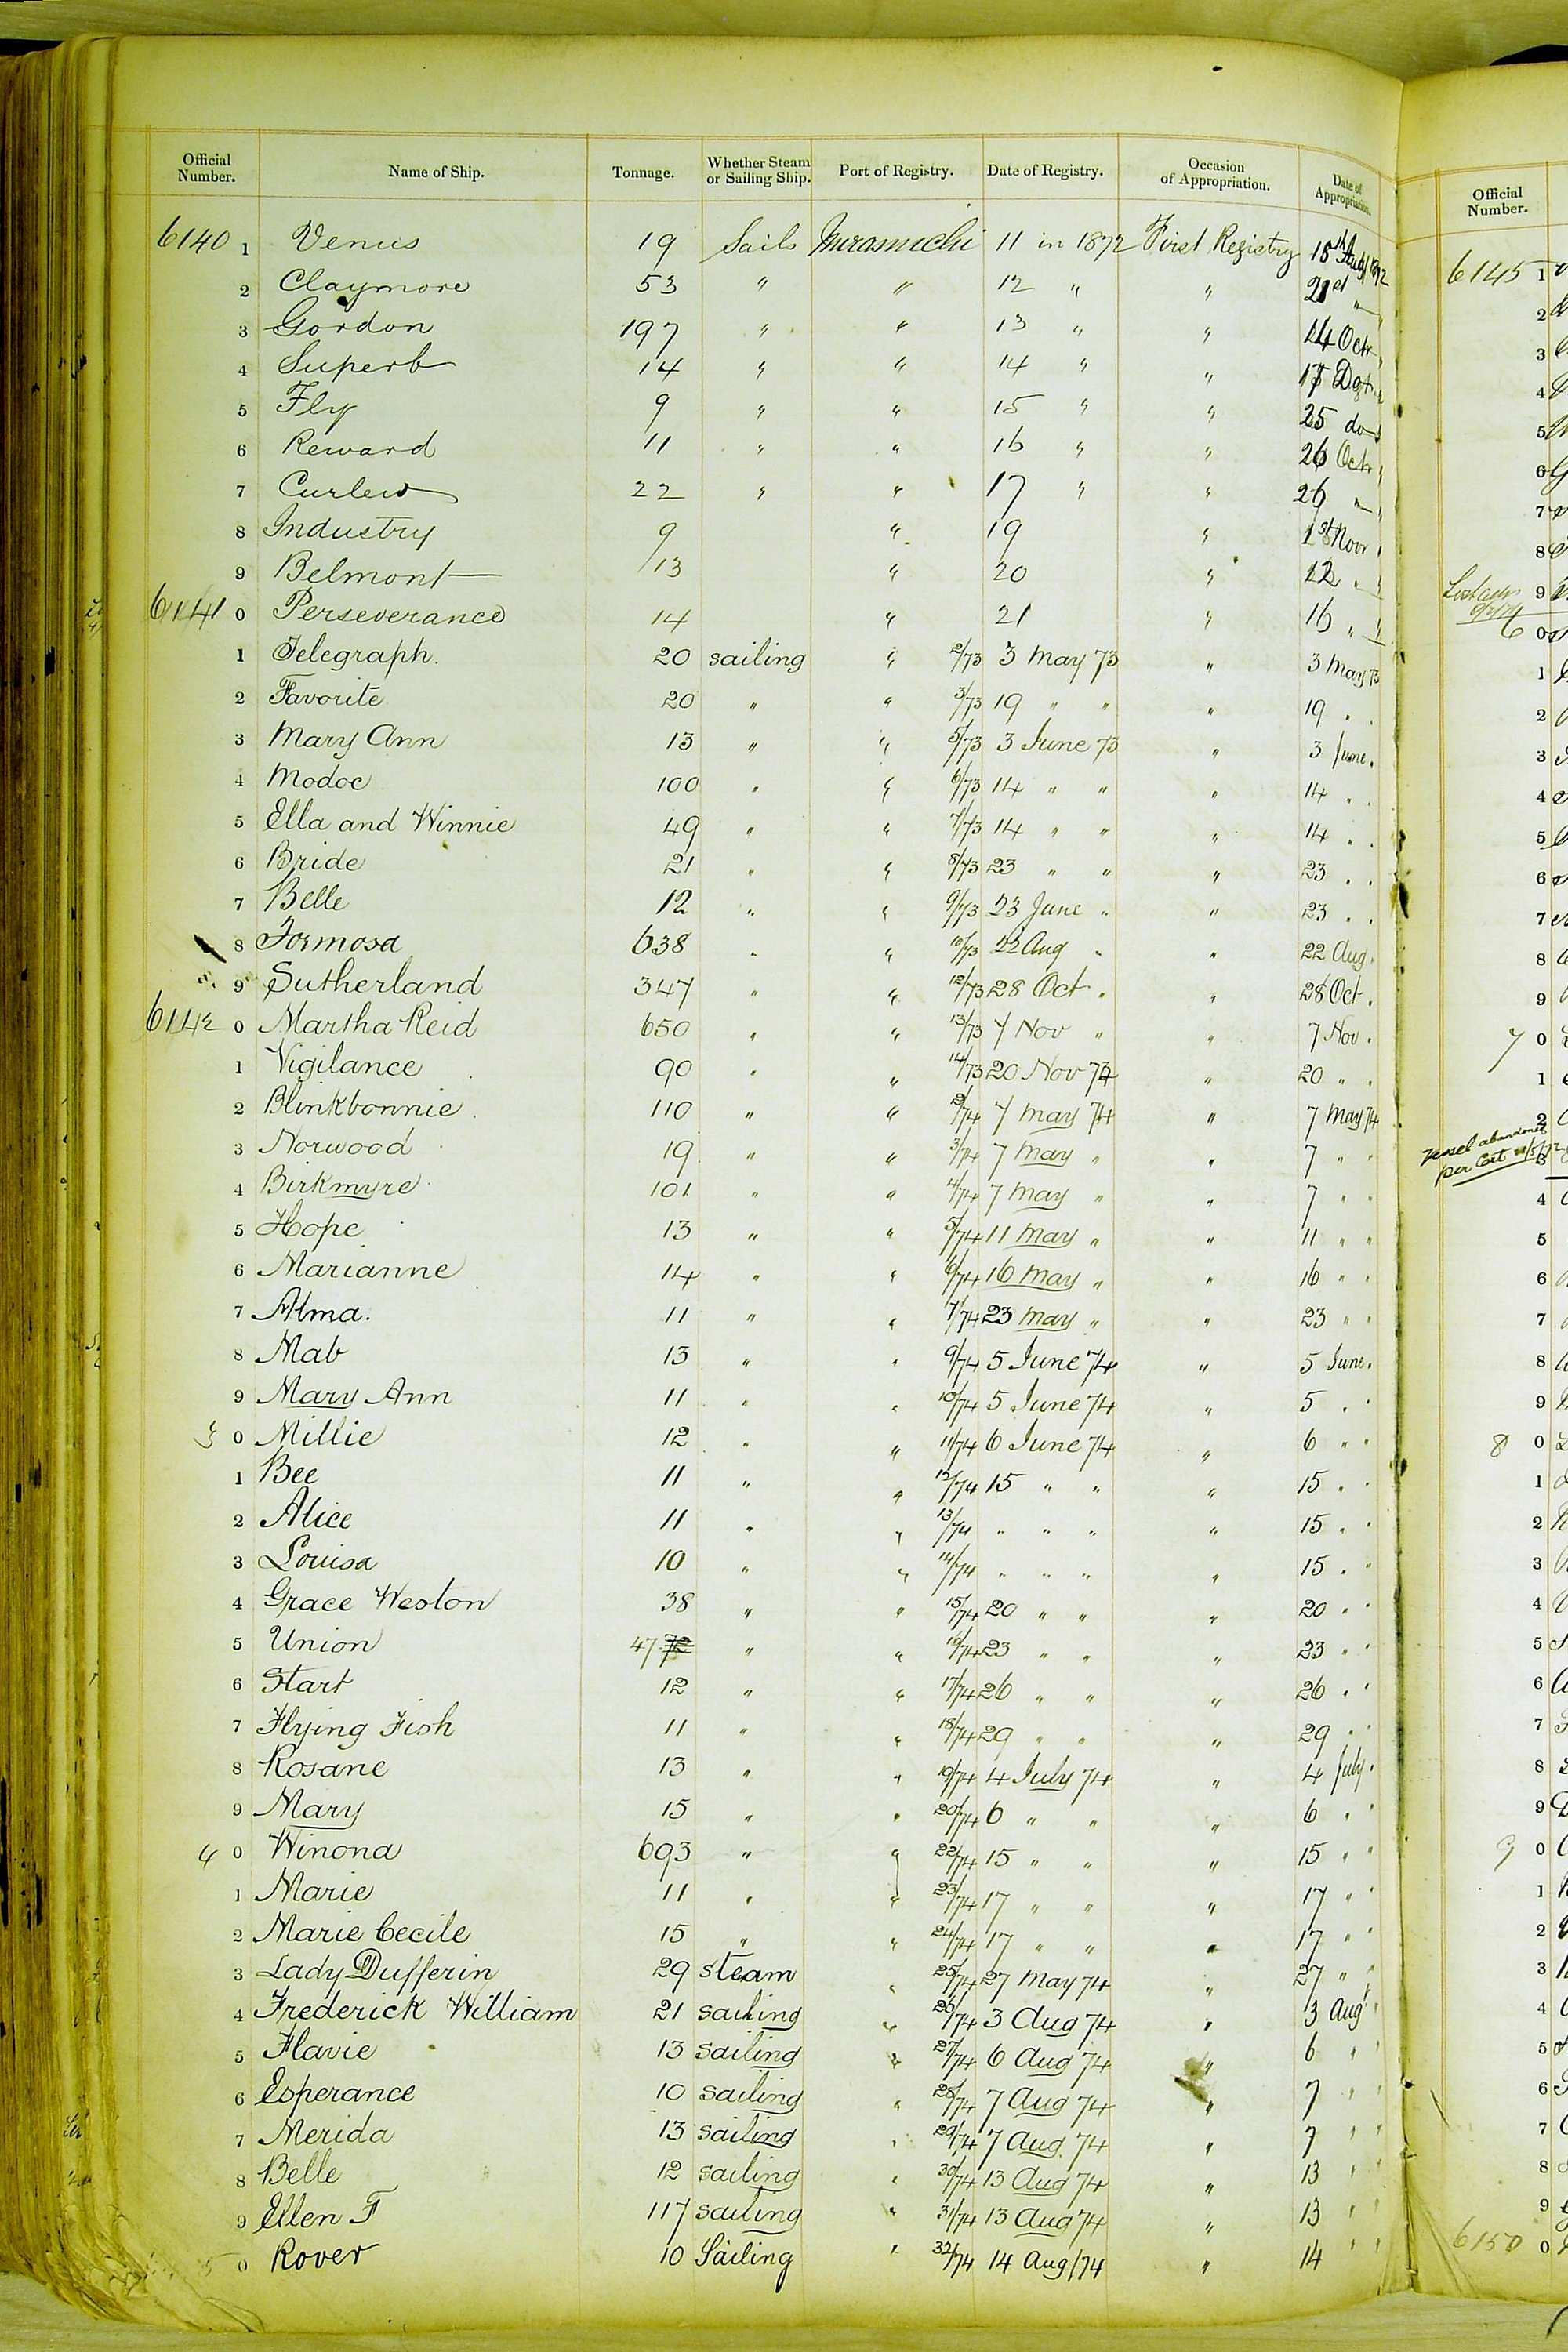 Official Number. Name of Ship. Tonnage. Whether Steam or Sailing Ship. Port of Registry. Date of Registry. Occasion of Appropriation. Date of Appropriation.
6140 1 Venus 19 Sails Miramichi 11 in 1872 First Registry 15th Augt 1872
2 Claymore 53 " " 12 " " 21st "
3 Gordon 197 " " 13 " " 14 Octr
4 Superb 14 " " 14 " "
5 Fly 9 " " 15 " " 25 do
6 Reward 11 " " 16 " " 26 Octr
7 Curlew 22 " " 17 " " 26 "
8 Industry 9 " 19 " 1st Novr
9 Belmont 13 " 20 " 12 "
6141 0 Perseverance 14 " 21 " 16 "
1 Telegraph. 20 sailing " 2/73 3 May 73 " 3 May 73
2 Favorite 20 " " 3/73 19 " " " 19 " "
3 Mary Ann 13 " " 5/73 3 June 73 " 3 June "
4 Modoc 100 " " 6/73 14 " " " 14 " "
5 Ella and Winnie 49 " " 7/73 14 " " " 14 " "
6 Bride 21 " " 8/73 23 " " " 23 " "
7 Belle 12 " " 9/73 23 June " " 23 " "
8 Formosa 638 " " 10/73 22 Aug " " 22 Aug "
9 Sutherland 347 " " 12/73 28 Oct " " 28 Oct "
6142 0 Martha Reid 650 " " 13/73 7 Nov " " 7 Nov "
1 Vigilance 90 " " 14/73 20 Nov 73 " 20 " "
2 Blinkbonnie 110 " " 2/74 7 May 74 " 7 May 74
3 Norwood 19 " " 3/74 7 May " " 7 " "
4 Birkmyre 101 " " 4/74 7 May " " 7 " "
5 Hope 13 " " 5/74 11 May " " 11 " "
6 Marianne 14 " " 6/74 16 May " " 16 " "
7 Alma. 11 " " 7/74 23 May " " 23 " "
8 Mab 13 " " 9/74 5 June 74 " 5 June "
9 Mary Ann 11 " " 10/74 5 June 74 " 5 " "
3 0 Millie 12 " " 11/74 6 June 74 " 6 " "
1 Bee 11 " " 12/74 15 " " " 15 " "
2 Alice 11 " " 13/74 " " " " 15 " "
3 Louisa 10 " " 14/74 " " " " 15 " "
4 Grace Weston 38 " " 15/74 20 " " " 20 " "
5 Union 47 72 " " 16/74 23 " " " 23 " "
6 Start 12 " " 17/74 26 " " " 26 " "
7 Flying Fish 11 " " 18/74 29 " " " 29 " "
8 Rosane 13 " " 19/74 4 July 74 " 4 July "
9 Mary 15 " " 20/74 6 " " " 6 " "
4 0 Winona 693 " " 22/74 15 " " " 15 " "
1 Marie 11 " " 23/74 17 " " " 17 " "
2 Marie Cecile 15 " " 24/74 17 " " " 17 " "
3 Lady Dufferin 29 steam " 25/74 27 May 74 " 27 " "
4 Frederick William 21 sailing " 26/74 3 Aug 74 " 3 Augt "
5 Flavie 13 sailing " 27/74 6 Aug 74 " 6 " "
6 Esperance 10 sailing " 28/74 7 Aug 74 " 7 " "
7 Merida 13 sailing " 29/74 7 Aug 74 " 7 " "
8 Belle 12 sailing " 30/74 13 Aug 74 " 13 " "
9 Ellen F 117 sailing " 31/74 13 Aug 74 " 13 " "
5 0 Rover 10 Sailing " 32/74 14 Aug/74 " 14 " "
Official Number.
6145 1
2
3
4
5
6
7
8
9
6 0
1
2
3
4
5
6
7
8
9
7 0
1
2
Vessel abandoned
per Cert
3
4
5
6
7
8
9
8 0
1
2
3
4
5
6
7
8
9
9 0
1
2
3
4
5
6
7
8
9
6150 0